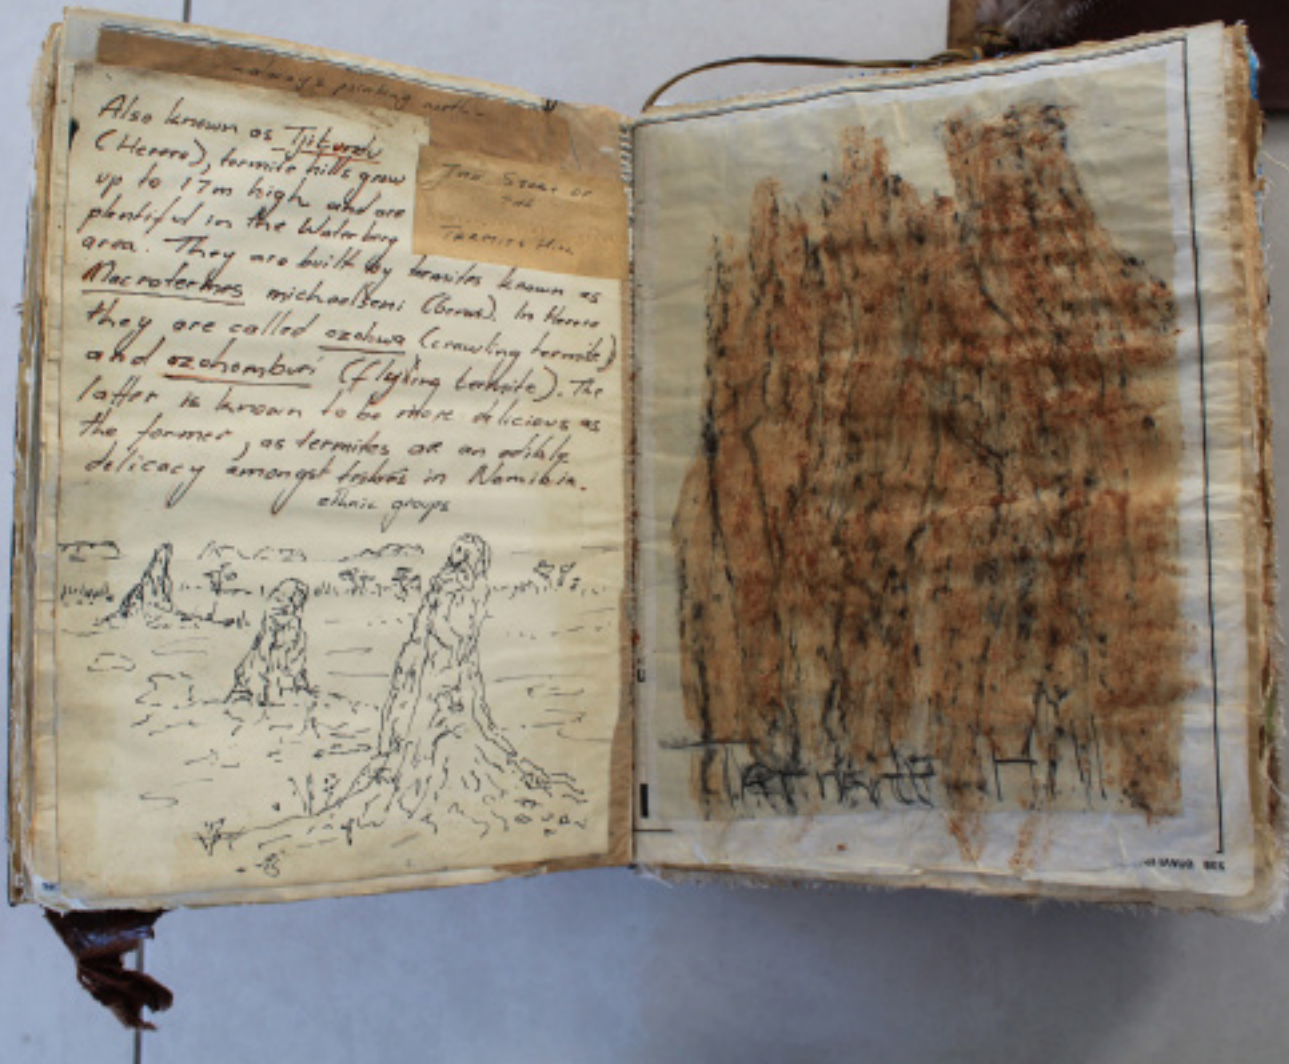 always pointing north-
Also known as Tjitundu
(Herero), termite hills grow
up to 17m high and are
plentiful in the Waterberg
area. They are built by termites known as
Macrotermes michaelseni (Genus). In Herero
they are called ozohwa (crawling termite)
and ozohomburi (flying termite). The
latter is known to be more delicious as
the former, as termites are an edible
delicacy amongst tribes in Namibia.
ethnic groups
The Story of
the
Termite Hill
Termite Hill